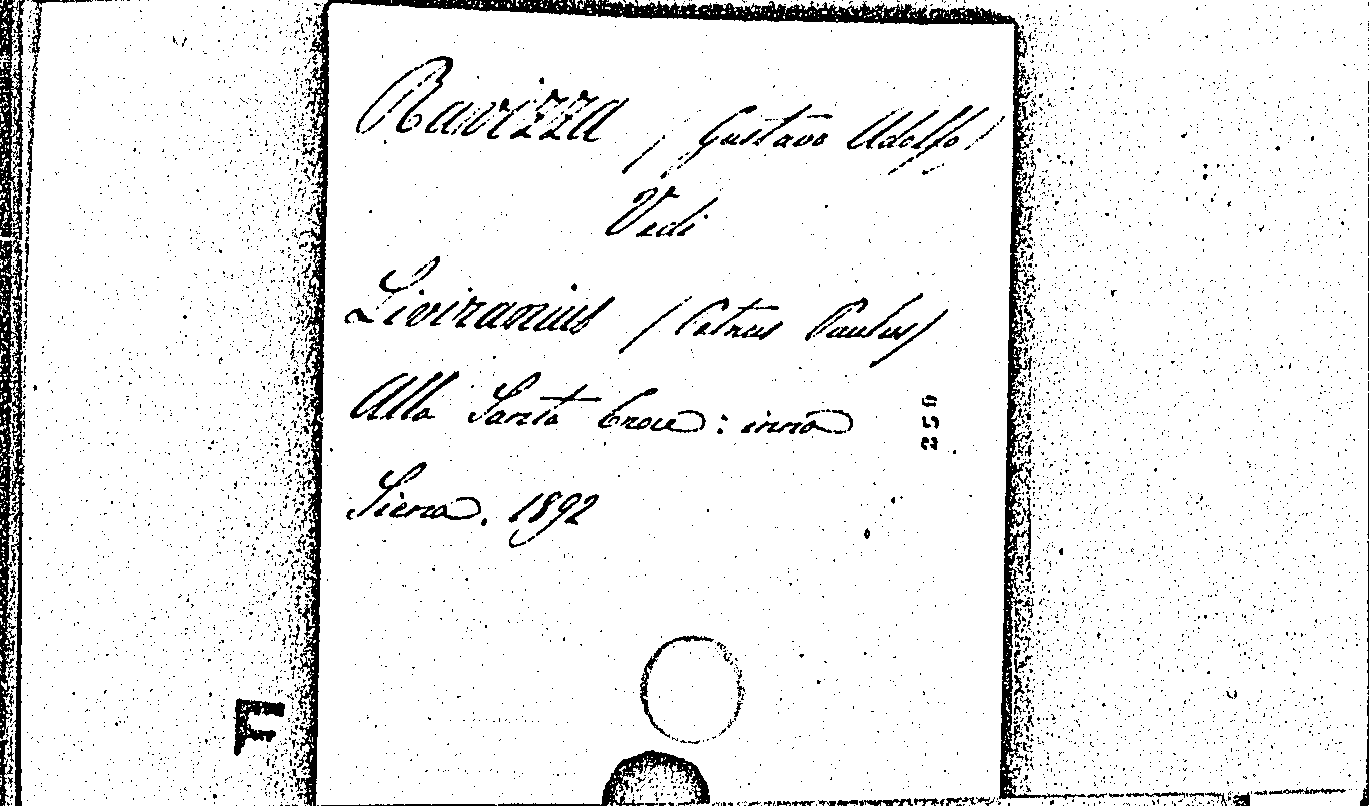 Ravizza (Gustavo Adolfo)
Vedi
Liviranius (Petrus Paulus)
Alla Santa Croce: inno
Siena. 1892
250
F